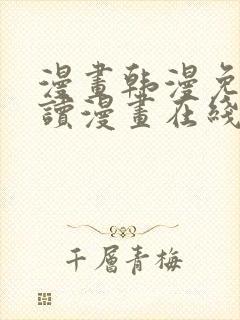 漫畫韩漫免
讀漫畫在綫
千層青梅